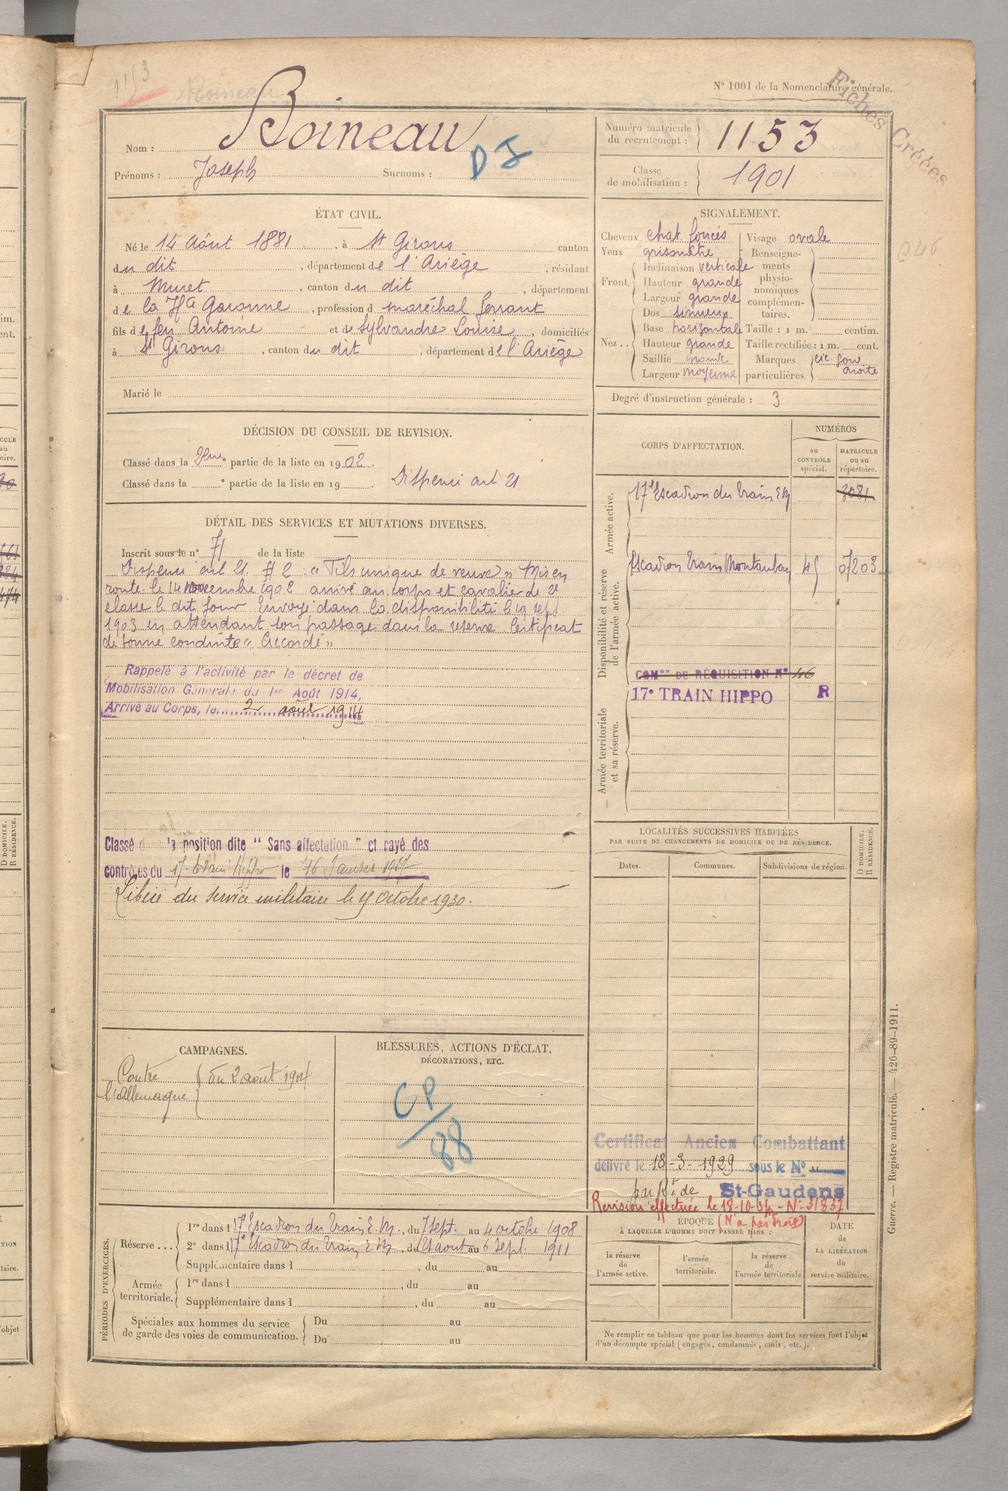 N° 1001 de la Nomenclature générale.
Fiches Créées
Nom : Boineau
Prénoms : Joseph Surnoms :
D I
Numéro matricule du recrutement : 1153
Classe de mobilisation : 1901
ÉTAT CIVIL.
Né le 14 Août 1881, à St Girons canton
du dit, département de l'Ariège, résidant
à Muret, canton du dit, département
de la Hte Garonne, profession d maréchal ferrant
fils de feu Antoine et de Sylvandre Louise, domiciliés
à St Girons, canton du dit, département de l'Ariège
Marié le
SIGNALEMENT.
Cheveux chat. foncés
Yeux grisonatre
Front Inclinaison verticale
Hauteur grande
Largeur grande
Nez Dos sinueux
Base horizontale
Hauteur grande
Saillie grande
Largeur moyenne
Visage ovale
Renseignements physionomiques complémentaires.
Taille : 1 m. centim.
Taille rectifiée : 1 m. cent.
Marques particulières. cic. joue droite
Degré d'instruction générale : 3
DÉCISION DU CONSEIL DE REVISION.
Classé dans la 2ème partie de la liste en 1902.
Classé dans la e partie de la liste en 19 Dispensé art 21
DÉTAIL DES SERVICES ET MUTATIONS DIVERSES.
Inscrit sous le n° 71 de la liste
Dispensé art 21. # 2. « Fils unique de veuve » Mis en
route le 14 Novembre 1902 arrivé au corps et cavalier de 2e
classe le dit jour. Envoyé dans la disponibilité le 19 sept.
1903 en attendant son passage dans la réserve Certificat
de bonne conduite « Accordé »
Rappelé à l'activité par le décret de
Mobilisation Générale du 1er Août 1914,
Arrivé au Corps, le 2 août 1914
Classé dans la position dite " Sans affectation " et rayé des
contrôles du 17e Train Hippo le 16 Janvier 1927
Libéré du service militaire le 15 octobre 1930.
CORPS D'AFFECTATION.
NUMÉROS
au contrôle spécial.
MATRICULE ou au répertoire.
Armée active.
17e Escadron du Train E.M. 2081
Disponibilité et réserve de l'armée active.
Escadron Train Montauban 45 07203
COMon DE RÉQUISITION N° 46
17e TRAIN HIPPO R
Armée territoriale et sa réserve.
LOCALITÉS SUCCESSIVES HABITÉES
PAR SUITE DE CHANGEMENTS DE DOMICILE OU DE RÉSIDENCE.
Dates. Communes. Subdivisions de région.
D DOMICILE. R RÉSIDENCE.
CAMPAGNES.
Contre l'Allemagne du 2 août 1914
BLESSURES, ACTIONS D'ÉCLAT,
DÉCORATIONS, ETC.
CP/88
Certificat Ancien Combattant
délivré le 18-3-1929 sous le N°
par Rt de St-Gaudens
Revision effectuée le 18-10-34 - N° 31837
(N'a pas droit)
PÉRIODES D'EXERCICES.
Réserve... 1re dans l 17e Escadron du Train E.M., du 7 sept. au 4 octobre 1908
2e dans l 17e Escadron du Train E.M., du 21 aout au 6 Sept. 1911
Supplémentaire dans l , du au
Armée territoriale. 1re dans l , du au
Supplémentaire dans l , du au
Spéciales aux hommes du service
de garde des voies de communication. Du au
Du au
ÉPOQUE
À LAQUELLE L'HOMME DOIT PASSER DANS :
la réserve de l'armée active.
l'armée territoriale.
la réserve de l'armée territoriale
DATE de LA LIBÉRATION du service militaire.
Ne remplir ce tableau que pour les hommes dont les services font l'objet
d'un décompte spécial (engagés, condamnés, omis, etc.).
Guerre. — Registre matricule. — 426-89-1911.